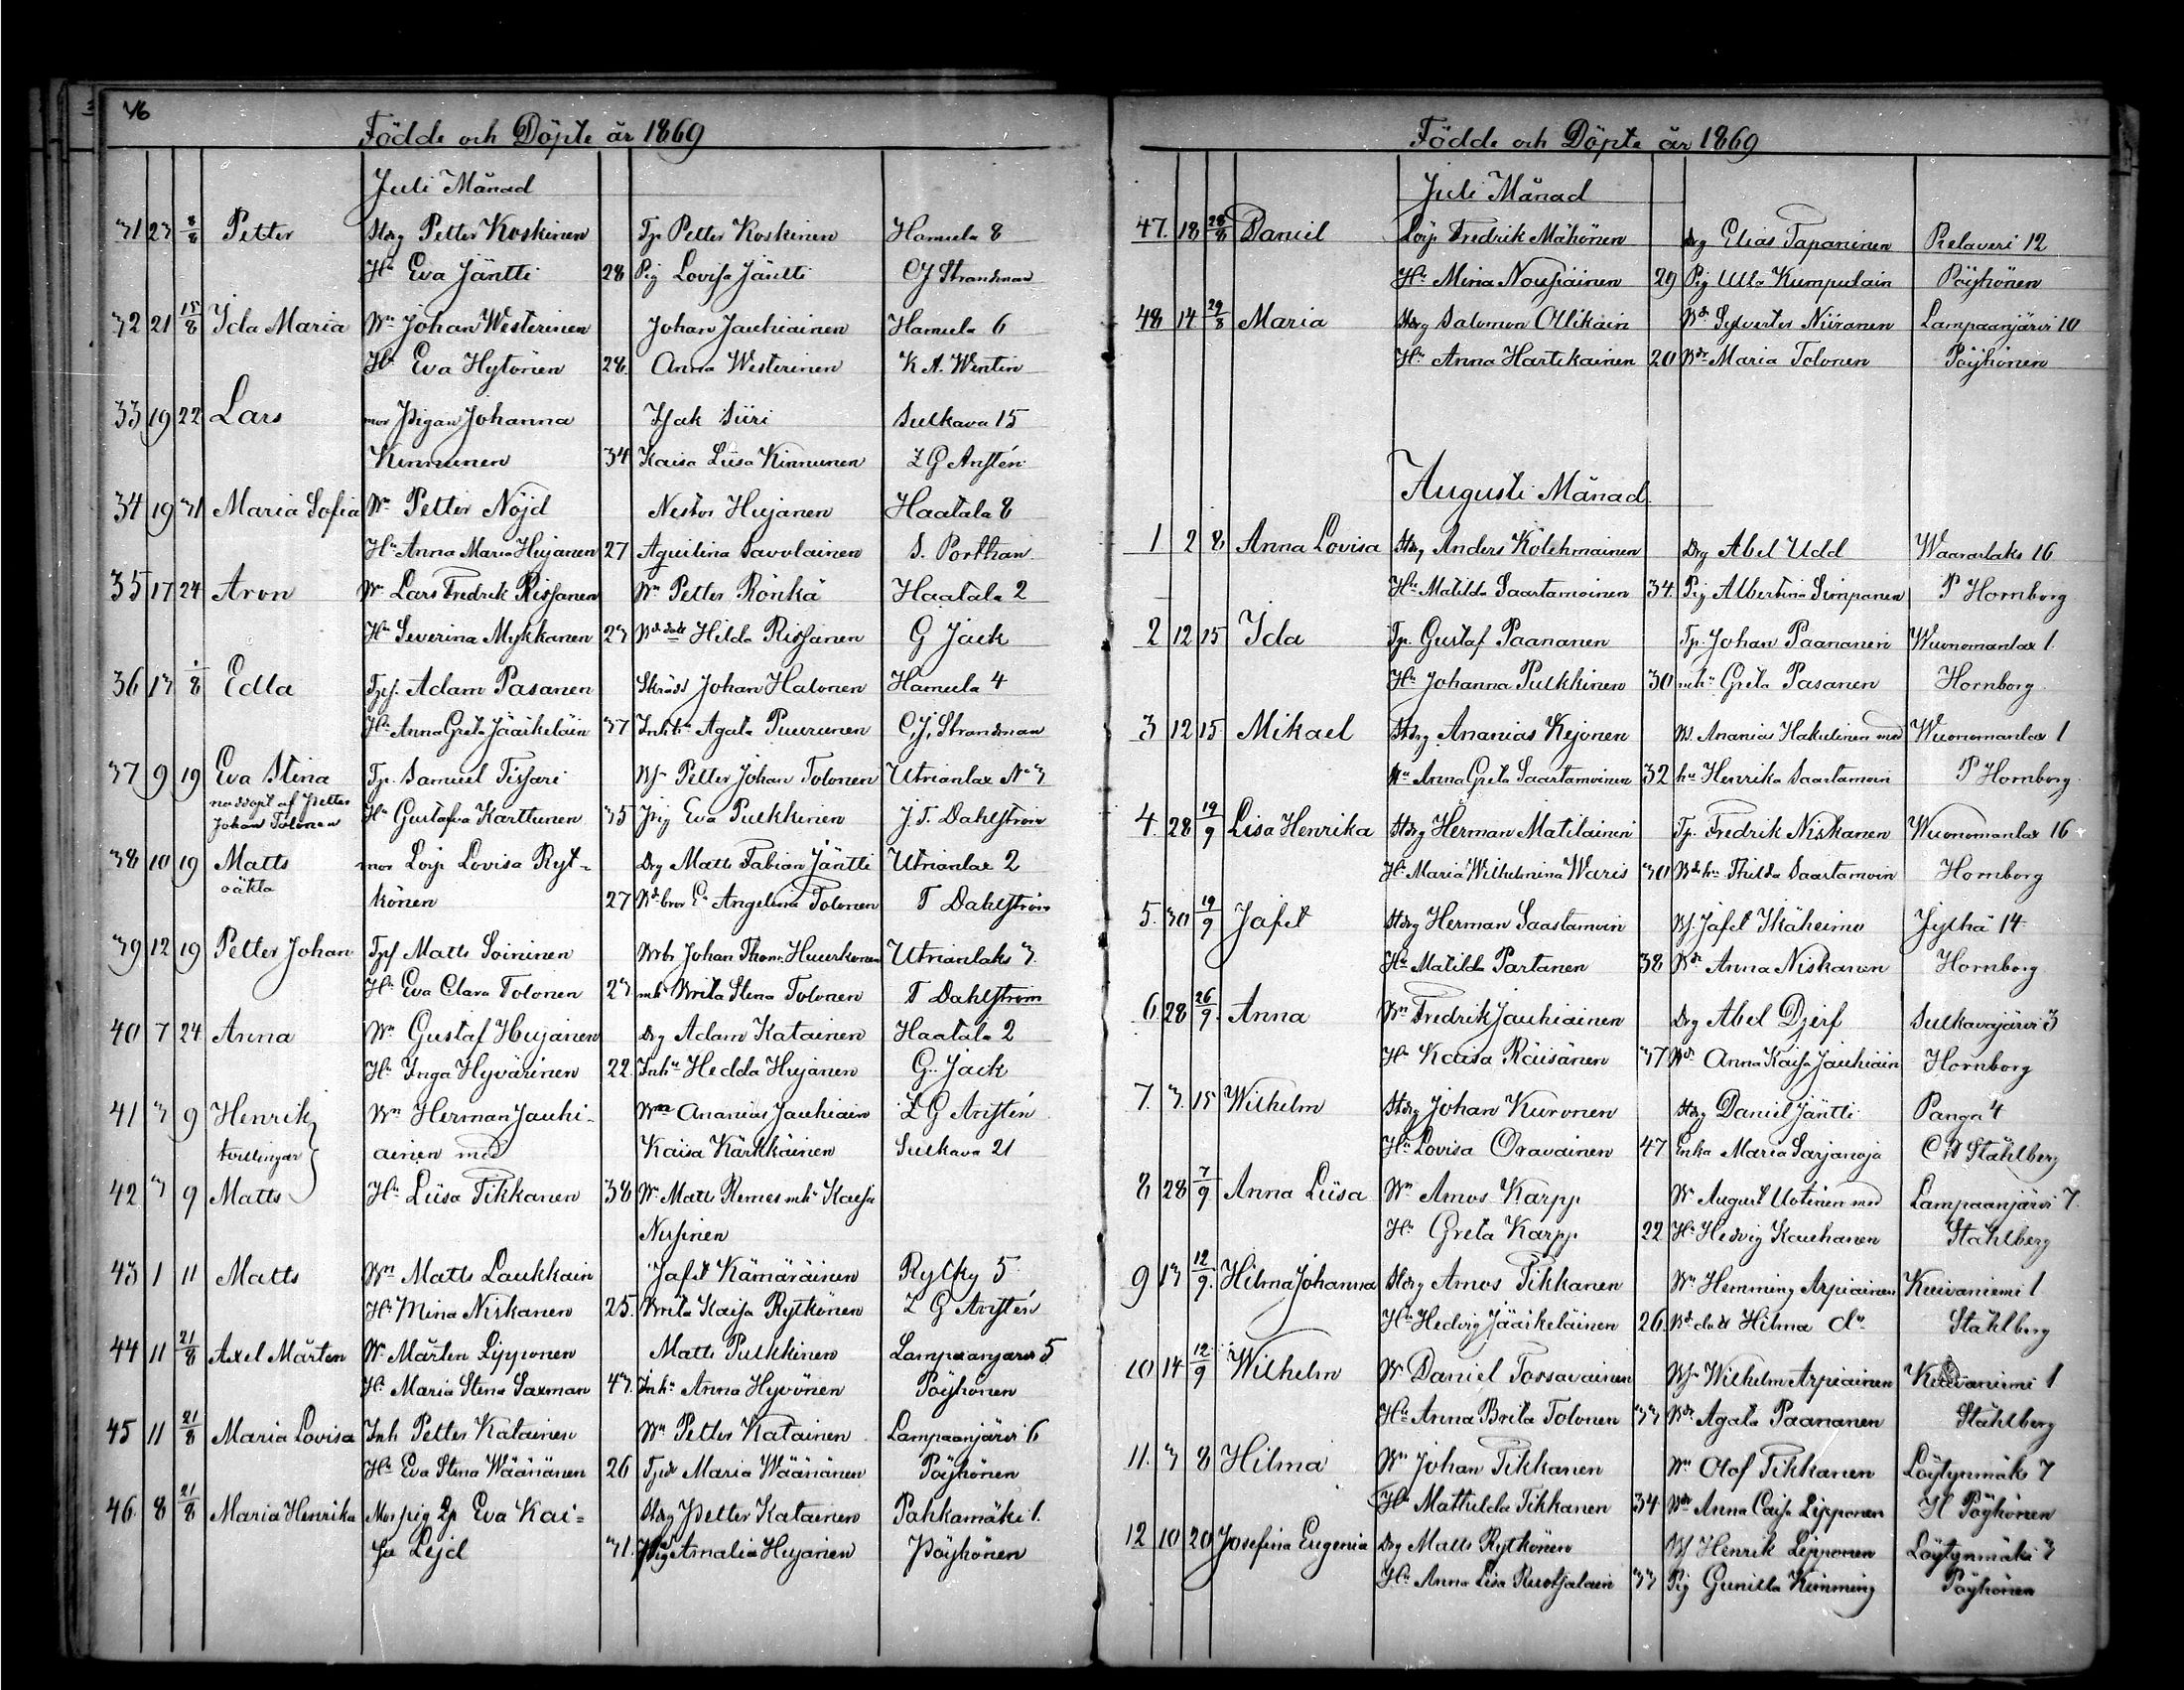 76
Födde och Döpte år 1869
Juli Månad
31 23 8/8 Petter Stdrg Petter Koskinen Tp. Petter Koskinen Hamula 8
Hu Eva Jäntti 28 Pig Lovisa Jäntti CJ Strandman
32 21 15/8 Ida Maria Bn Johan Westerinen Johan Jauhiainen Hamula 6
Hu Eva Hytönen 28. Anna Westerinen K A. Wentin
33 19 22 Lars mor Pigan Johanna Isak Siiri Sulkava 15
Kinnunen 34 Kaisa Liisa Kinnunen Z G Anstén
34 19 31 Maria Sofia Bn Petter Nöjd Nestor Hujanen Haatala 8
Hu Anna Maria Hujanen 27 Aquilina Savolainen S. Porthan
35 17 24 Aron Bn Lars Fredrik Rissanen Bn Petter Rönkä Haatala 2
Hu Severina Mykkanen 23 Bd dotr Hilda Rissanen G Jack
36 13 1/8 Edla Tpf. Adam Pasanen Skrädd Johan Halonen Hamula 4
Hu Anna Greta Jääskeläin 37 Inhu Agata Puurunen C.J. Strandman
37 9 19 Eva Stina Tp. Samuel Tissari Bs Petter Johan Tolonen Utrianlax No 3
nöddöpt af Petter
Johan Tolonen Hu Gustafva Karttunen 35 Pig Eva Pulkkinen J. T. Dahlström
38 10 19 Matts mor Löip Lovisa Ryt- Drg Matts Fabian Jäntti Utrianlax 2
oäkta könen 27 Angelina Tolonen T Dahlström
39 12 19 Petter Johan Tpf Matts Soininen Brbr Johan Thom. Huuskonen Utrianlaks 3.
Hu Eva Clara Tolonen 23 mhu Brita Stina Tolonen T Dahlström
40 7 24 Anna Bn Gustaf Hujanen Drg Adam Katainen Haatala 2
Hu Inga Hyvärinen 22. Inhu Hedda Hujanen G. Jack
41 3 9 Henrik Bn Herman Jauhi- Bn Ananias Jauhiain Z G Anstén
tvillingar ainen med Kaisa Kärkkäinen Sulkava 21
42 3 9 Matts Hu Liisa Tikkanen 38 Bn Matts Remes mhu Kaisa
Nissinen
43 1 11 Matts Bn Matts Laukkain Jafet Kämäräinen Rytky 5
Hu Mina Niskanen 25. Brita Kaisa Rytkönen Z G Anstén
44 11 21/8 Axel Mårten Bn Mårten Lipponen Matts Pulkkinen Lampaanjärvi 5
Hu Maria Stina Saxman 43. Inhu Anna Hyvönen Pöyhönen
45 11 21/8 Maria Lovisa Inh Petter Katainen Bn Petter Katainen Lampaanjärvi 6
Hu Eva Stina Wäänänen 26 Tpdr Maria Wäänänen Pöyhönen
46 8 21/8 Maria Henrika Mor pig Lp Eva Kai= Stdrg Petter Katainen Pahkamäki 1.
sa Lejd 31. Pig Amalia Hujanen Pöyhönen
Födde och Döpte år 1869
Juli Månad
47. 18 28/8 Daniel Löip Fredrik Mähönen Drg Elias Tapaninen Pielaveri 12
Hu Mina Nousiainen 29 Pig Ulla Kumpulain Pöyhönen
48 14 29/8 Maria Stdrg Salomon Ollikain Bd Sylvester Niiranen Lampaanjärvi 10
Hu Anna Hartikainen 20 Bdr Maria Tolonen Pöyhönen
Augusti Månad
1 2 8 Anna Lovisa Stdrg Anders Kolehmainen Drg Abel Udd Waararlaks 16
Hu Matilda Saastamoinen 34. Pig Albertina Simpanen P Hornborg
2 12 15 Ida Tp. Gustaf Paananen Tp. Johan Paananen Wuonomanlax 1.
Hu Johanna Pulkkinen 30 mhu Greta Pasanen Hornborg
3 12 15 Mikael Stdrg Ananias Kejonen Bd. Ananias Hakulinen med Wuonomanlax 1
Hu Anna Greta Saastamoinen 32 hu Henrika Saastamoin P Hornborg
4. 28 19/9 Lisa Henrika Stdrg Herman Matilainen Tp. Fredrik Niskanen Wuonomanlax 16
Hu Maria Wilhelmina Waris 30 Bdhu Thilda Saastamoin Hornborg
5. 30 19/9 Jafet Stdrg Herman Saastamoin Bs. Jafet Ikäheimo Jylhä 14
Hu Matilda Partanen 38 Bdr Anna Niskanen Hornborg
6 28 26/9 Anna Bn Fredrik Jauhiainen Drg Abel Djerf Sulkavajärvi 3
Hu Kaisa Räisänen 37 Bdr Anna Kaisa Jauhiain Hornborg
7. 3. 15 Wilhelm Stdrg Johan Kuronen Stdrg Daniel Jäntti Panga 4
Hu Lovisa Oravainen 47 Enka Maria Sarjanoja Ståhlberg
8 28 7/9 Anna Liisa Bn Amos Karpp Bn August Uotinen med Lampaanjärvi 7.
Hu Greta Karpp 22 Hu Hedvig Kauhanen Ståhlberg
9 13 12/9. Hilma Johanna Stdrg Amos Tikkanen Bn Hemming Arpiainen Kuivaniemi 1.
Hu Hedvig Jääskeläinen 26. Bd dotr Hilma do Ståhlberg
10 14 12/9 Wilhelm Bn Daniel Tossavainen Bs Wilhelm Arpiainen Kuivaniemi 1
Hu Anna Brita Tolonen 33 Bdr Agata Paananen Ståhlberg
11. 3 8 Hilma Bn Johan Tikkanen Bn Olof Tikkanen Löytynmäki 7
Hu Mathilda Tikkanen 34 Bdr Anna Caisa Lipponen H Pöyhönen
12 10 20 Josefina Eugenia Drg Matts Rytkönen Bs Henrik Lipponen Löytynmäki 3
Hu Anna Lisa Ruotsalain 33 Pig Gunilla Kimming Pöyhönen